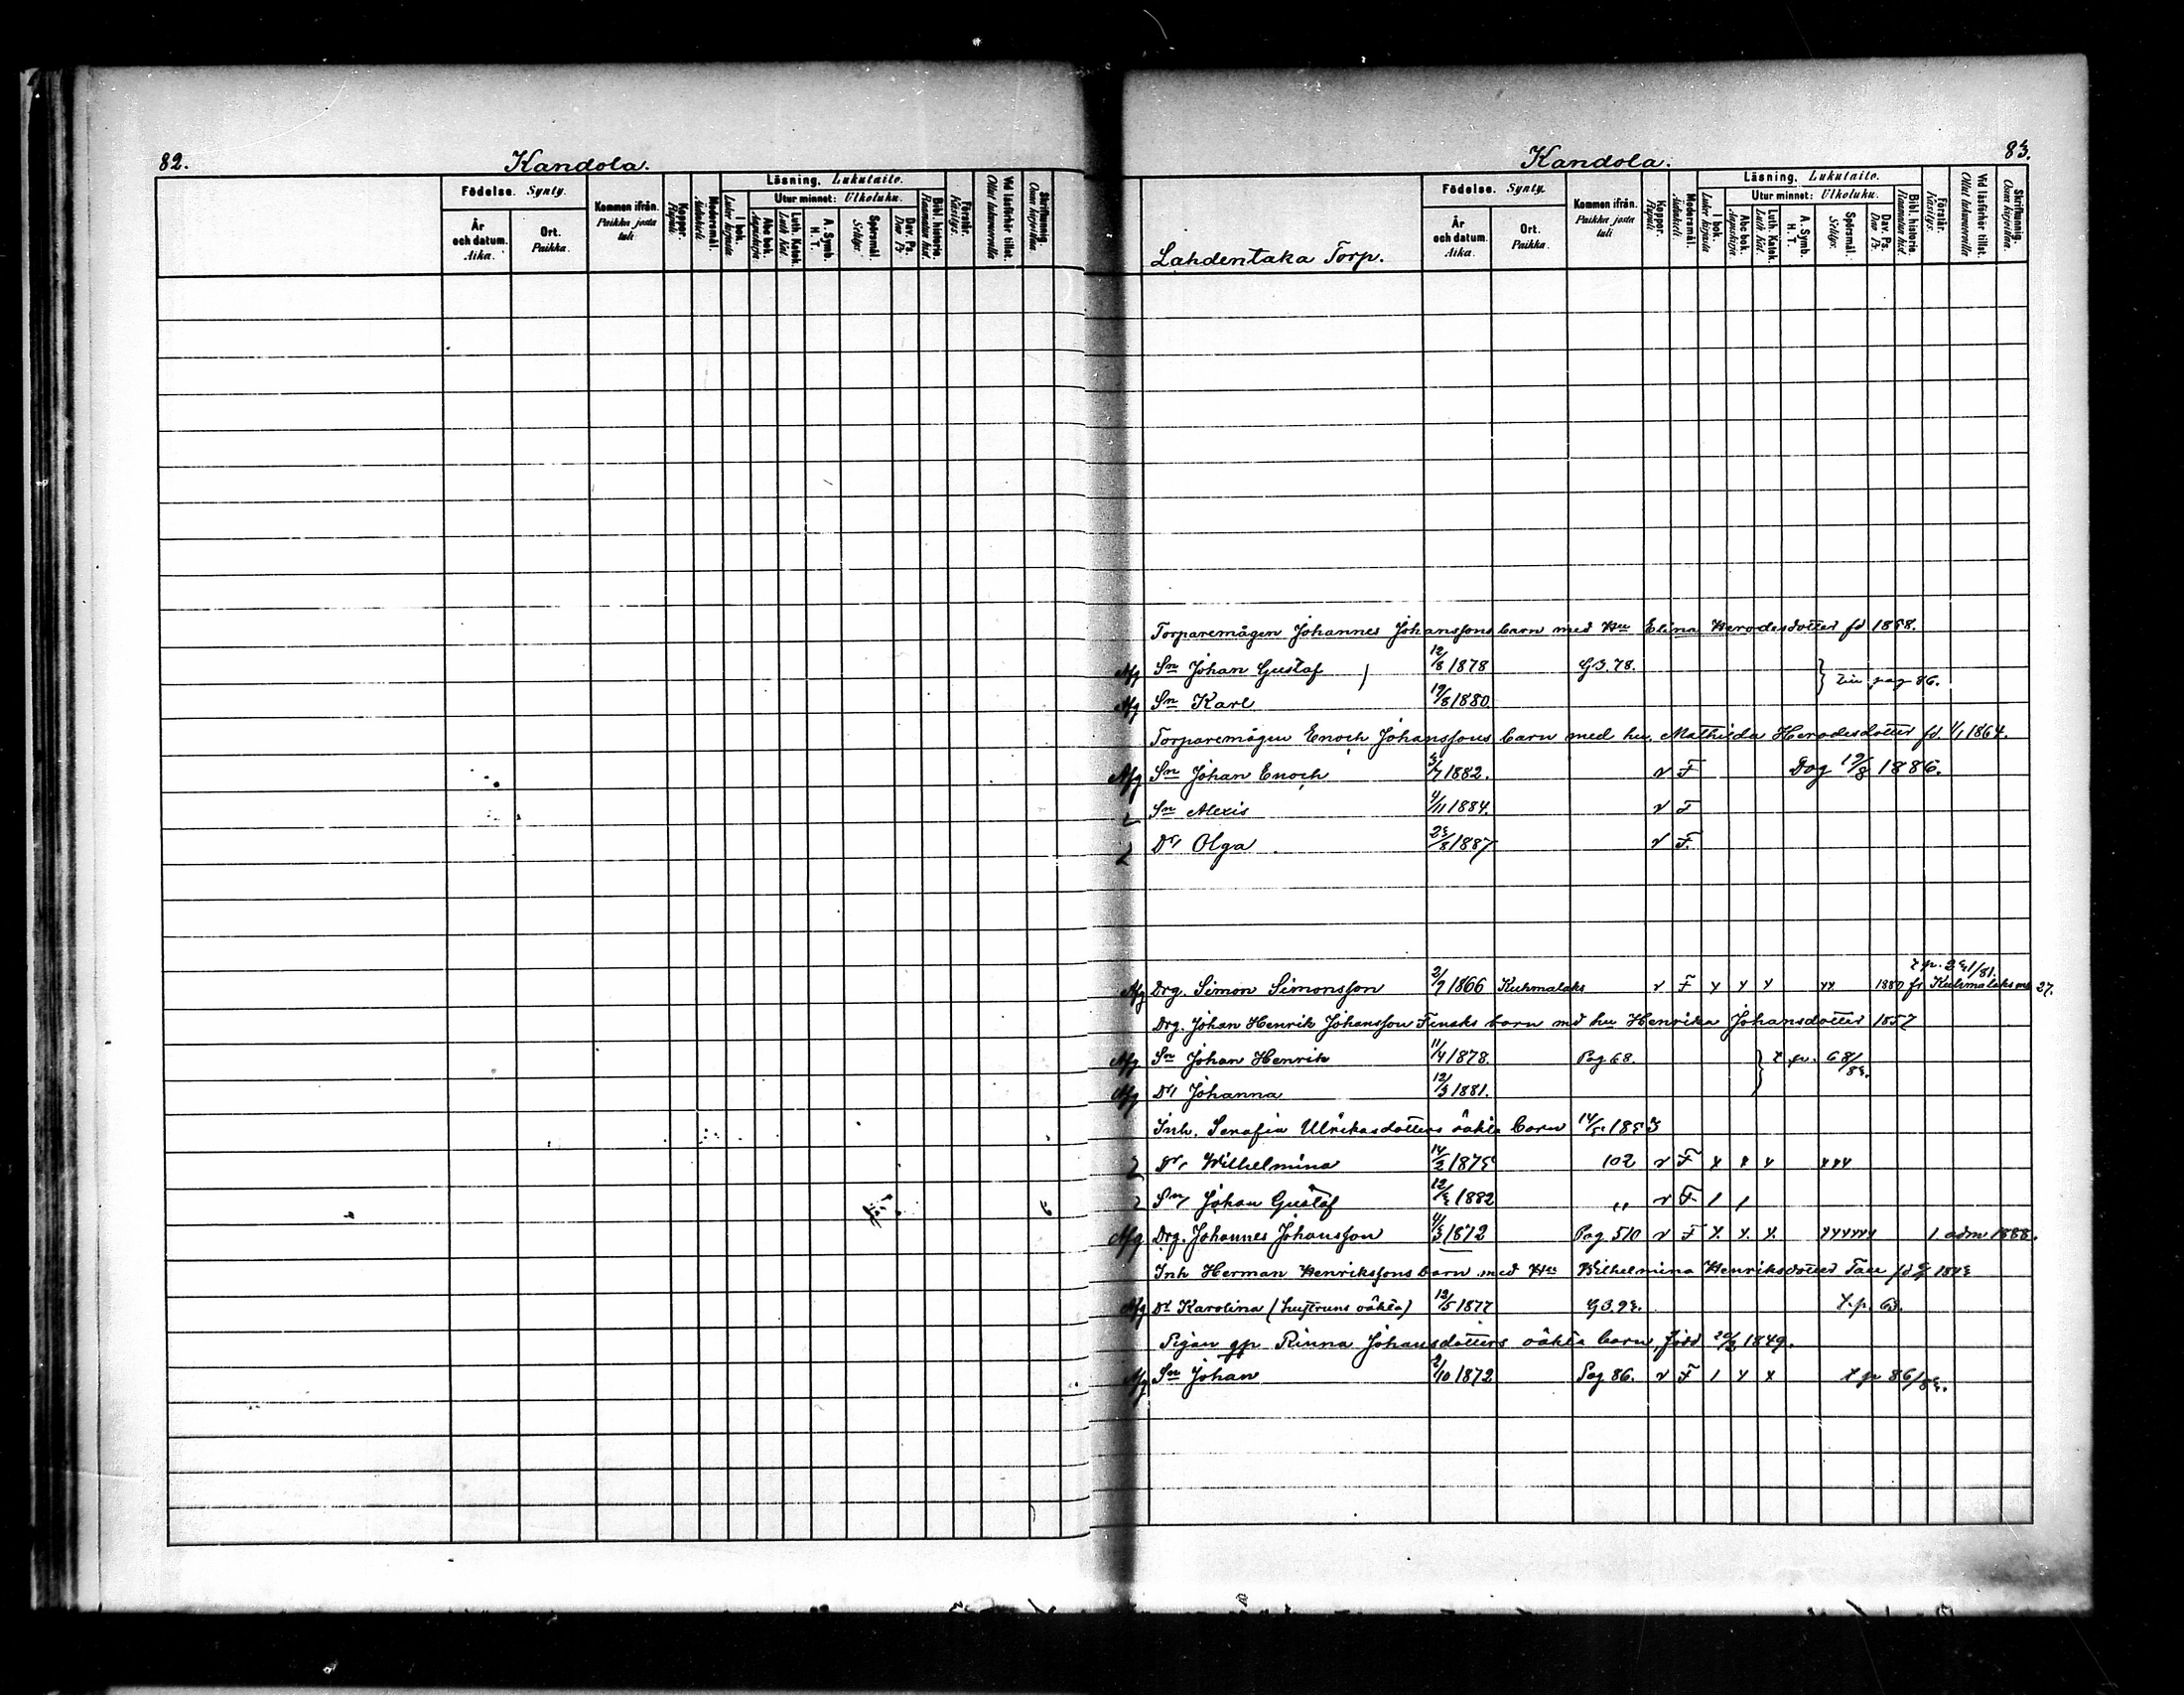 82.
Kandola.
Födelse. Synty.
År och datum. Aika.
Ort. Paikka.
Kommen ifrån. Paikka josta tuli
Koppor. Rupuli
Modersmål. Äidinkieli
Läsning. Lukutaito.
I bok. Luku kirjasta
Utur minnet: Ulkoluku.
Abc bok. Aapiskirja
Luth. Katek. Luth. Kat.
A. Symb. H. T.
Spörsmål. Selitys.
Dav. Ps. Dav. Ps.
Bibl. historie. Raamatun hist.
Förstår. Käsitys.
Vid läsförhör tillst. Ollut lukuseroilla
Skrifkunnig. Osaa kirjoittaa.
Kandola.
83.
Lahdentaka Torp.
Födelse. Synty.
År och datum. Aika.
Ort. Paikka.
Kommen ifrån. Paikka josta tuli
Koppor. Rupuli
Modersmål. Äidinkieli
Läsning. Lukutaito.
I bok. Luku kirjasta
Utur minnet: Ulkoluku.
Abc bok. Aapiskirja
Luth. Katek. Luth. Kat.
A. Symb. H. T.
Spörsmål. Selitys.
Dav. Ps. Dav. Ps.
Bibl. historie. Raamatun hist.
Förstår. Käsitys.
Vid läsförhör tillst. Ollut lukuseroilla
Skrifkunnig. Osaa kirjoittaa.
Torparemågen Johannes Johanssons barn med Hu Elina Herodesdotter fd 1858.
Afg Sn Johan Gustaf 12/8 1878 GB. 78.
Afg Sn Karl 19/8 1880 pag 86.
Torparemågen Enoch Johanssons barn med hu. Mathilda Herodesdotter fd. 1/1 1864.
Afg Sn Johan Enoch 3/7 1882. v F Dog 19/8 1886.
Sn Alexis 4/11 1884. v F
Dr Olga 23/8 1887 v F.
Afg Drg. Simon Simonsson 2/9 1866 Kuhmalaks v F x x x xx 1880 fr Kuhmalaks 27.
Drg. Johan Henrik Johansson barn md hu Henrika Johansdotter 1857
Afg Sn Johan Henrik 11/4 1878. Pag 68. x p. 68/
Afg Dr Johanna 12/3 1881.
Inh. Serafia Ulrikasdotters oäkta barn
Dr Wilhelmina 102 v F x x x xxx
Sn Johan Gustaf 1882 ,, v F 1 1
Afg Drg. Johannes Johansson 4/3 1872 Pag. 510 v F x. x. x. xxxxxx 1 adm 1888.
Inh Herman Henrikssons barn med Hu Wilhelmina Henriksdotter
Afg Dr Karolina (hustruns oäkta) 12/5 1877 x. p. 63.
Pigan gp Rinna Johansdotters oäkta barn, född 1849.
Afg Sn Johan 2/10 1872 Pag 86. v F 1 x x x p 86/